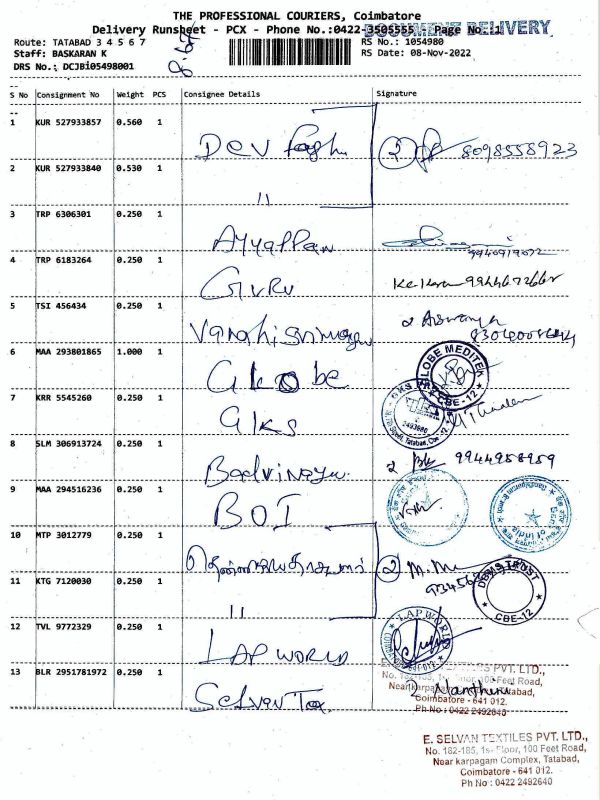 THE PROFESSIONAL COURIERS, Coimbatore
DOCUMENT DELIVERY
Delivery Runsheet - PCX - Phone No.:0422-3505555 Page No.:1
Route: TATABAD 3 4 5 6 7
RS No.: 1054980
Staff: BASKARAN K
RS Date: 08-Nov-2022
DRS No.: DCJBi05498001
S No Consignment No Weight PCS Consignee Details Signature
1 KUR 527933857 0.560 1 Dev
2 8098558923
2 KUR 527933840 0.530 1 "
3 TRP 6306301 0.250 1 Ayyappan
9940919072
4 TRP 6183264 0.250 1 Guru
5 TSI 456434 0.250 1
6 MAA 293801865 1.000 1 Globe
GLOBE MEDITEK
CBE-12
7 KRR 5545260 0.250 1 GKS
2493680
Tatabad, Cbe
8 SLM 306913724 0.250 1
2 9944958959
9 MAA 294516236 0.250 1 BOI
Bank of India
10 MTP 3012779 0.250 1
2 M.
11 KTG 7120030 0.250 1 "
TRUST
CBE-12
12 TVL 9772329 0.250 1 LAP WORLD
LAP WORLD
13 BLR 2951781972 0.250 1 Selvan Tex
E. SELVAN TEXTILES PVT. LTD.,
No. 182-185, 1st Floor, 100 Feet Road,
Near karpagam Complex, Tatabad,
Coimbatore - 641 012.
Ph No : 0422 2492640
E. SELVAN TEXTILES PVT. LTD.,
No. 182-185, 1st Floor, 100 Feet Road,
Near karpagam Complex, Tatabad,
Coimbatore - 641 012.
Ph No : 0422 2492640